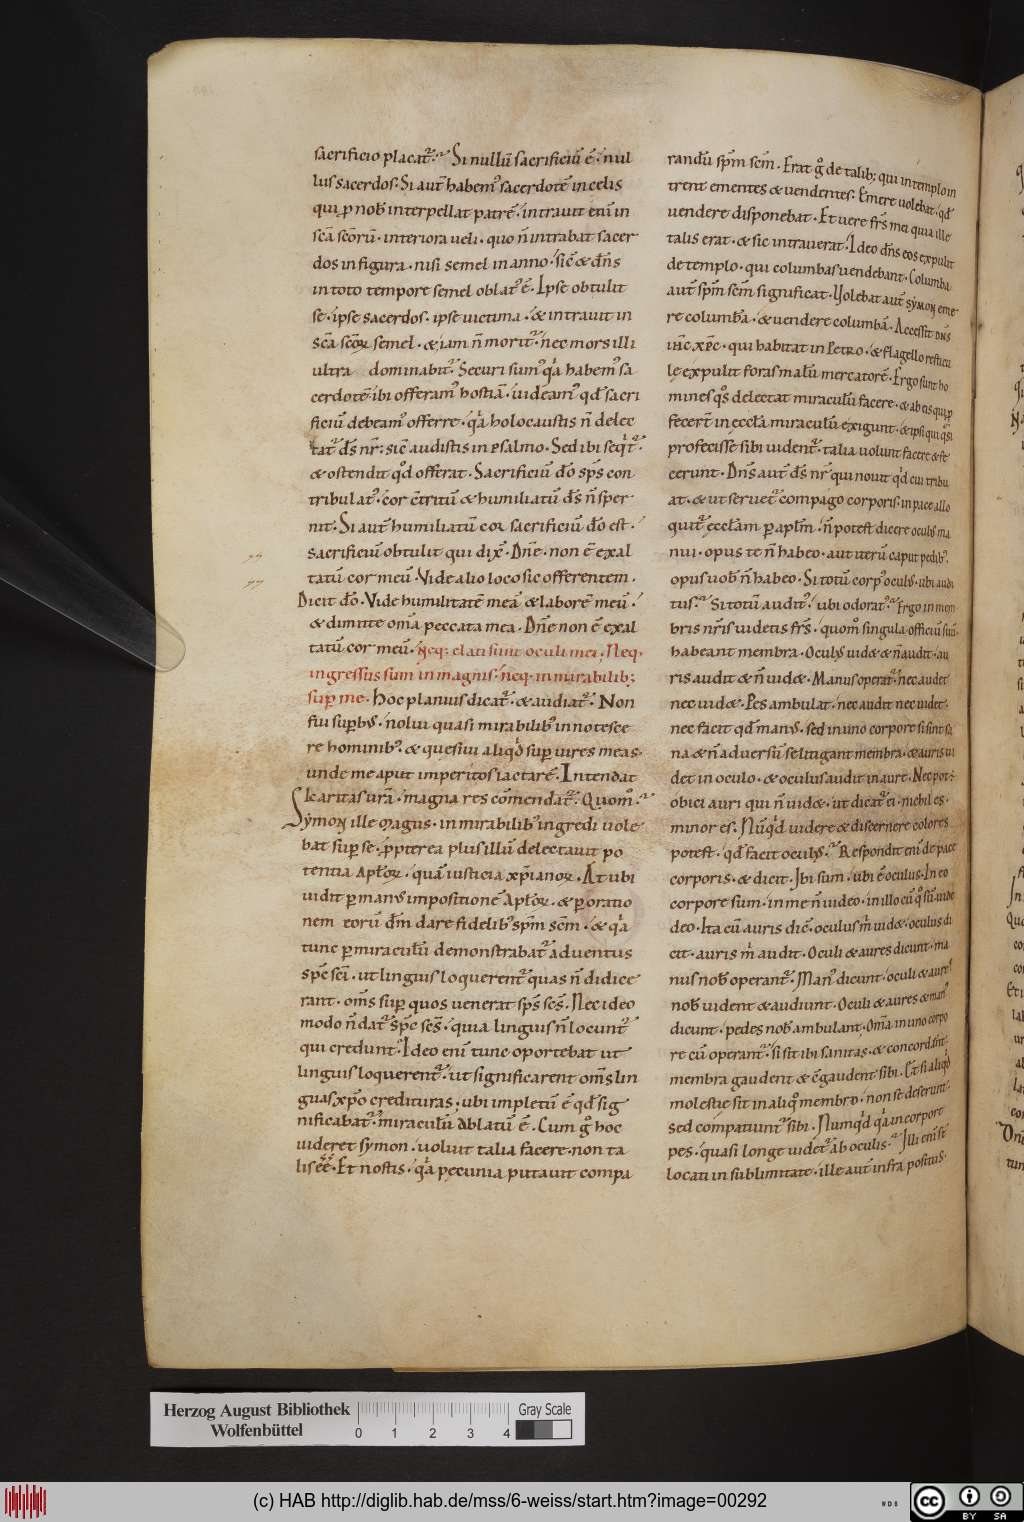 sacrificio placat᷑. Si nullū sacrificiū ē. nul
lus sacerdos. Si aut̄ habem᷒ sacerdotē in celis
qui ꝓ nob̄ interpellat patrē. intravit enī in
scā scōrū. interiora veli. quo n̄ intrabat sacer
dos in figura. nisi semel in anno. sic̄ & dn̄s
in toto tempore semel oblat᷒ ē. Ipse obtulit
se. ipse sacerdos. ipse victima. & intravit in
scā scōꝝ semel. & iam n̄ morit᷑. nec mors illi
ultra dominabit᷑. Securi sum᷒ qͣa habem᷒ sa
cerdotē. ibi offeram᷒ hostiā. videam᷒ qd̄ sacri
ficiū debeam᷒ offerre. qͣa holocaustis n̄ delec
tat᷑ ds̄ nr̄. sic̄ audistis in psalmo. Sed ibi seqͥt᷑.
& ostendit qͦd offerat. Sacrificiū dō sps̄ con
tribulat᷒. cor c̄tritū & humiliatū ds̄ n̄ sper
nit. Si aut̄ humiliatū cor sacrificiū dō est.
sacrificiū obtulit qui dix̄. Dn̄e. non ē exal
tatū cor meū. Vide alio loco sic offerentem.
Dicit dō. Vide humilitatē meā & laborē meū.
& dimitte om̄a peccata mea. Dn̄e non ē exal
tatū cor meū. Neq; elati sunt oculi mei. Neq.
ingressus sum in magnis. neq. in mirabilib;
sup̄ me. Hoc planius dicat᷑. & audiat᷑. Non
fui sup̄b᷒. nolui quasi mirabilib᷒ innotesce
re hominib᷒. & quesivi aliqͥd sup̄ vires meas.
unde me aput imperitos iactarē. Intendat
karitas vr̄a. magna res cōmendat᷑. Quom̊.
Symon ille magus. in mirabilib᷒ ingredi vole
bat sup̄ se. ꝓpterea plus illū delectavit po
tentia aplōꝝ. quā iusticia xp̄ianoꝝ. At ubi
vidit ꝑ man᷒ impositionē aplōꝝ. & ꝑ oratio
nem eorū dm̄ dare fidelib᷒ spm̄ scm̄. & qͣa
tunc ꝑ miraculū demonstrabat᷑ adventus
spc̄ scī. ut linguis loquerent᷑ quas n̄ didice
rant. om̄s sup̄ quos venerat sps̄ scs̄. Nec ideo
modo n̄ dat᷑ spc̄ scs̄. quia linguis n̄ locunt᷑
qui credunt. Ideo enī tunc oportebat ut
linguis loquerent᷑. ut significarent om̄s lin
guas xpō credituras. ubi impletū ē qd̄ sig
nificabat᷑. miraculū ablatū ē. Cum gͦ hoc
videret symon. voluit talia facere. non ta
lis eē. Et nostis. qͣa pecunia putavit compa
randū spm̄ scm̄. Erat gͦ de talib; qui in templo in
trent ementes & vendentes. Emere volebat. qd̄
vendere disponebat. Et vere frs̄ mei quia ille
talis erat. & sic intraverat. Ideo dn̄s eos expulit
de templo. qui columbas vendebant. Columba
aut̄ spm̄ scm̄ significat. Volebat aut̄ symon eme
re columbā. & vendere columbā. Accessit dn̄s
ih̄c xp̄c. qui habitat in Petro. & flagello resticu
le expulit foras malū mercatorē. Ergo sunt ho
mines qͦs delectat miraculū facere. & ab eis qui ꝓ
fecert̄ in ecclā miraculū exigunt. & ipsi qui qͣsi
profecisse sibi vident᷑. talia volunt facere & fe
cerunt. Dn̄s aut̄ ds̄ nr̄ qui novit qͥd cui tribu
at. & ut servet᷑ compago corporis in pace allo
quit᷑ eccl̄am ꝑ aplm̄. n̄ potest dicere ocul᷒ ma
nui. opus te n̄ habeo. aut iterū caput pedib᷒.
opus vob̄ n̄ habeo. Si totū corp᷒ ocul᷒. ubi audi
tus. Si totū audit᷒. ubi odorat᷒. Ergo in mem
bris nr̄is videtis frs̄. quom̊ singula officiū suū
habeant membra. Ocul᷒ vid& & n̄ audit. au
ris audit & n̄ vid&. Manus operat᷑. nec audit
nec vid&. Pes ambulat. nec audit nec videt.
nec facit qd̄ man᷒. sed in uno corpore si sint sa
na & n̄ adversū se litigant membra. & auris vi
det in oculo. & oculus audit in aure. Nec pot̄
obici auri qui n̄ vid&. ut dicat᷑ ei. nichil es.
minor es. Nūqͥd videre & discernere colores
potest. qd̄ facit ocul᷒. Respondit enī de pace
corporis. & dicit. Ibi sum. ubi ē oculus. In eo
corpore sum. in me n̄ video. in illo cū qͦ sū vide
deo. Ita cū auris dic̄. oculus m̄ vid&. oculus di
cit. auris m̄ audit. Oculi & aures dicunt. ma
nus nob̄ operant᷑. Man᷒ dicunt. oculi & aures
nob̄ vident & audiunt. Oculi & aures & man᷒
dicunt. pedes nob̄ ambulant. Om̄a in uno corpo
re cū operant᷑. si sit ibi sanitas. & concordent
membra gaudent & c̄gaudent sibi. Et si aliqͥd
molestie sit in aliqͦ membro. non se deserunt.
sed compatiunt᷑ sibi. Numqͥd qͣa in corpore
pes. quasi longe videt᷑ ab oculis. Illi enī st̄
locati in sublimitate. ille aut̄ infra positus.
Herzog August Bibliothek
Wolfenbüttel
0 1 2 3 4
Gray Scale
(c) HAB http://diglib.hab.de/mss/6-weiss/start.htm?image=00292
WDB
cc BY SA